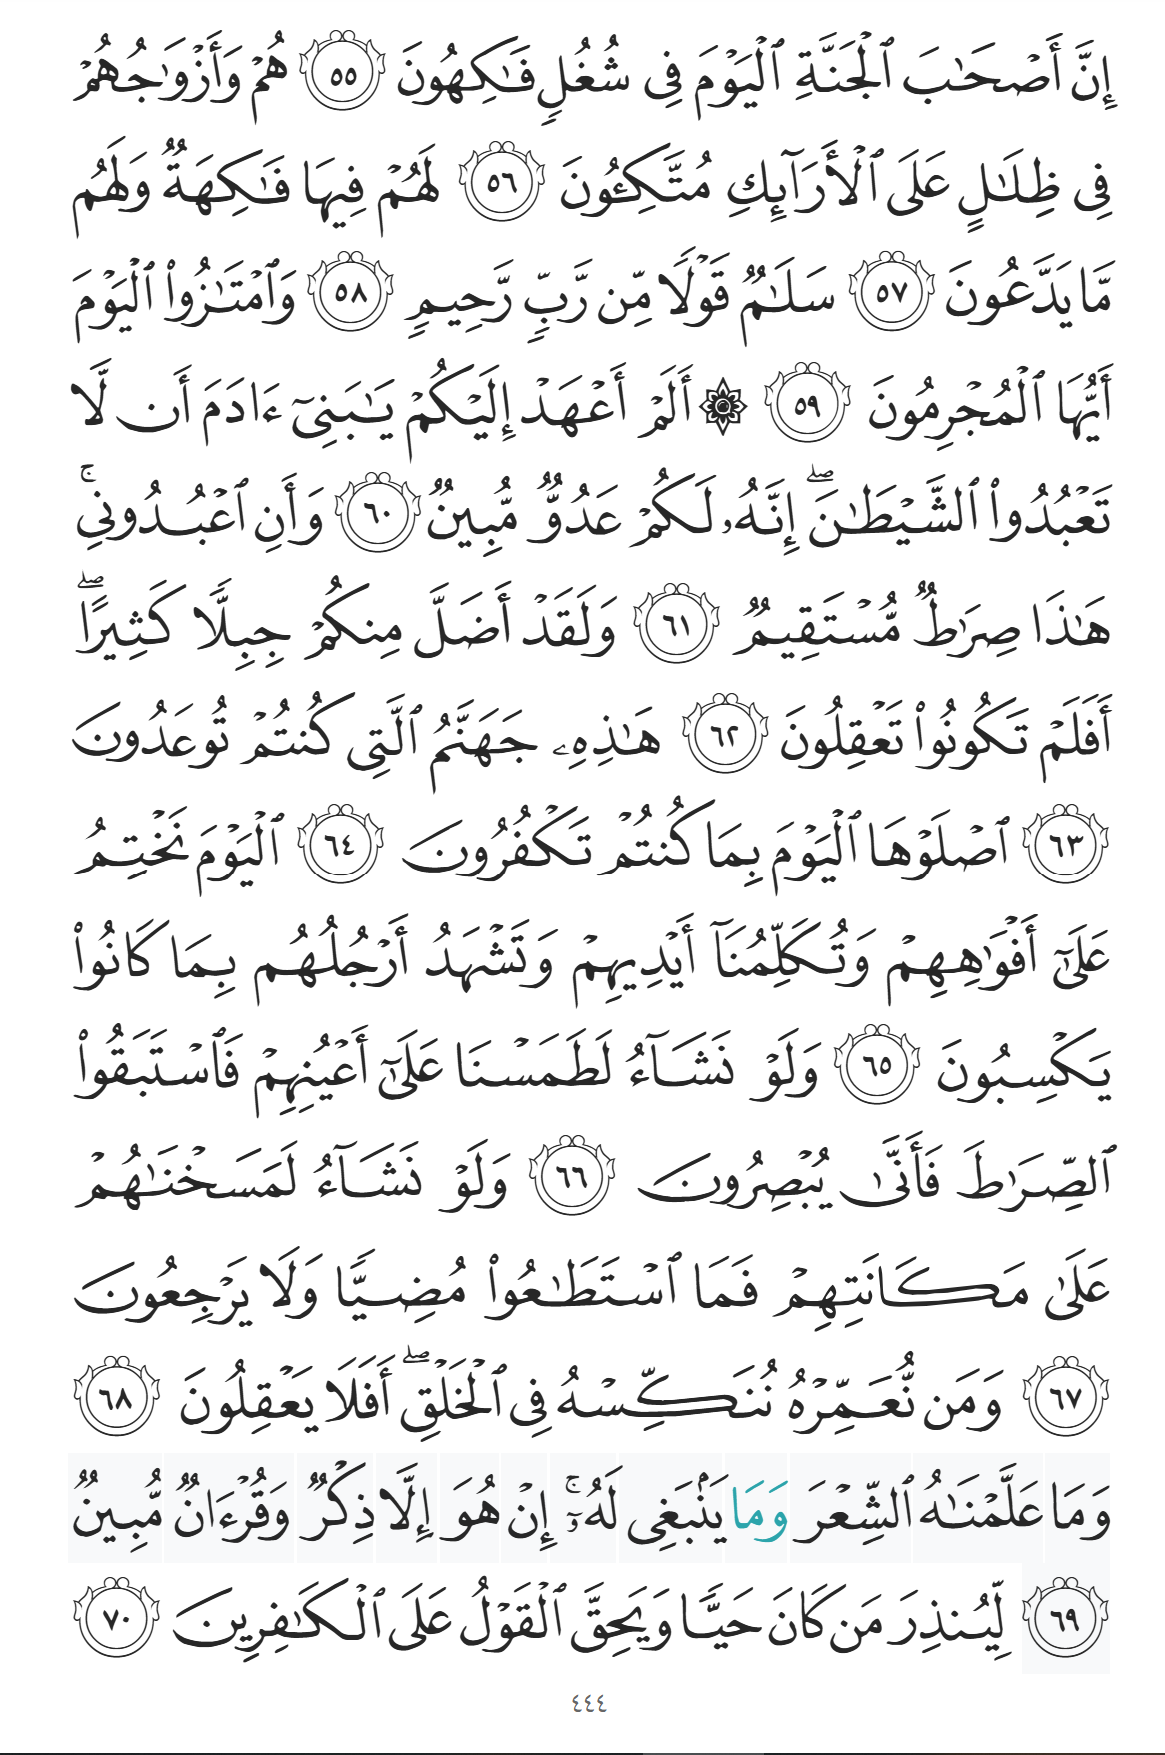 إِنَّ أَصْحَـٰبَ ٱلْجَنَّةِ ٱلْيَوْمَ فِى شُغُلٍ فَـٰكِهُونَ ٥٥ هُمْ وَأَزْوَٰجُهُمْ
فِى ظِلَـٰلٍ عَلَى ٱلْأَرَآئِكِ مُتَّكِـُٔونَ ٥٦ لَهُمْ فِيهَا فَـٰكِهَةٌ وَلَهُم
مَّا يَدَّعُونَ ٥٧ سَلَـٰمٌ قَوْلًا مِّن رَّبٍّ رَّحِيمٍ ٥٨ وَٱمْتَـٰزُوا۟ ٱلْيَوْمَ
أَيُّهَا ٱلْمُجْرِمُونَ ٥٩ ۞ أَلَمْ أَعْهَدْ إِلَيْكُمْ يَـٰبَنِىٓ ءَادَمَ أَن لَّا
تَعْبُدُوا۟ ٱلشَّيْطَـٰنَ ۖ إِنَّهُۥ لَكُمْ عَدُوٌّ مُّبِينٌ ٦٠ وَأَنِ ٱعْبُدُونِى ۚ
هَـٰذَا صِرَٰطٌ مُّسْتَقِيمٌ ٦١ وَلَقَدْ أَضَلَّ مِنكُمْ جِبِلًّا كَثِيرًا ۖ
أَفَلَمْ تَكُونُوا۟ تَعْقِلُونَ ٦٢ هَـٰذِهِۦ جَهَنَّمُ ٱلَّتِى كُنتُمْ تُوعَدُونَ
٦٣ ٱصْلَوْهَا ٱلْيَوْمَ بِمَا كُنتُمْ تَكْفُرُونَ ٦٤ ٱلْيَوْمَ نَخْتِمُ
عَلَىٰٓ أَفْوَٰهِهِمْ وَتُكَلِّمُنَآ أَيْدِيهِمْ وَتَشْهَدُ أَرْجُلُهُم بِمَا كَانُوا۟
يَكْسِبُونَ ٦٥ وَلَوْ نَشَآءُ لَطَمَسْنَا عَلَىٰٓ أَعْيُنِهِمْ فَٱسْتَبَقُوا۟
ٱلصِّرَٰطَ فَأَنَّىٰ يُبْصِرُونَ ٦٦ وَلَوْ نَشَآءُ لَمَسَخْنَـٰهُمْ
عَلَىٰ مَكَانَتِهِمْ فَمَا ٱسْتَطَـٰعُوا۟ مُضِيًّا وَلَا يَرْجِعُونَ
٦٧ وَمَن نُّعَمِّرْهُ نُنَكِّسْهُ فِى ٱلْخَلْقِ ۖ أَفَلَا يَعْقِلُونَ ٦٨
وَمَا عَلَّمْنَـٰهُ ٱلشِّعْرَ وَمَا يَنۢبَغِى لَهُۥٓ ۚ إِنْ هُوَ إِلَّا ذِكْرٌ وَقُرْءَانٌ مُّبِينٌ
٦٩ لِّيُنذِرَ مَن كَانَ حَيًّا وَيَحِقَّ ٱلْقَوْلُ عَلَى ٱلْكَـٰفِرِينَ ٧٠
٤٤٤